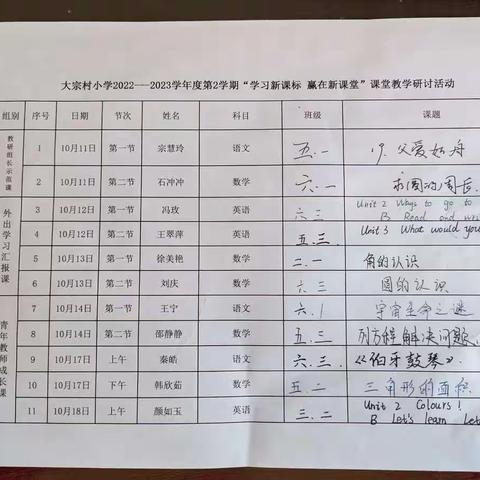 大宗村小学2022---2023学年度第2学期“学习新课标 赢在新课堂”课堂教学研讨活动
组别 序号 日期 节次 姓名 科目 班级 课题
教研组长示范课
1 10月11日 第一节 宗慧玲 语文 五.一 19.父爱如舟
2 10月11日 第二节 石冲冲 数学 六.一 求圆的周长
外出学习汇报课
3 10月12日 第一节 冯玫 英语 六三 Unit 2 Ways to go to
B Read and wri
4 10月12日 第二节 王翠萍 英语 五.三. Unit 3 What would you
5 10月13日 第一节 徐美艳 数学 二.一 角的认识
6 10月13日 第二节 刘庆 数学 六三 圆的认识
青年教师成长课
7 10月14日 第一节 王宁 语文 六.1 宇宙生命之谜
8 10月14日 第二节 邵静静 数学 五.三 列方程解决问题
9 10月17日 上午 秦皓 语文 六.三. 《伯牙鼓琴》.
10 10月17日 下午 韩欣茹 数学 五.二 三角形的面积
11 10月18日 上午 颜如玉 英语 三.二 Unit 2 Colours!
B Let's learn Let